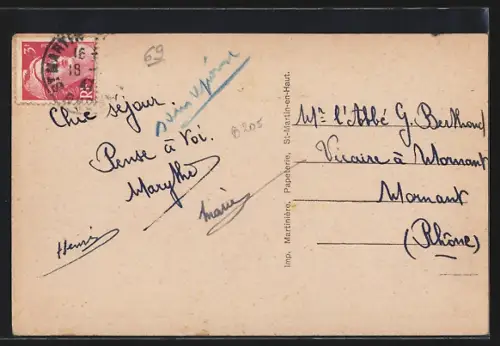 3F
ST MARTIN
16-
18
RF
69
sans réponse
8205
Chic séjour.
Pense à Toi.
Marythé
Marie
Henri
Imp. Martinière, Papeterie, St-Martin-en-Haut.
Mr l'Abbé G. Berthond
Vicaire à Mornant
Mornant
(Rhône)